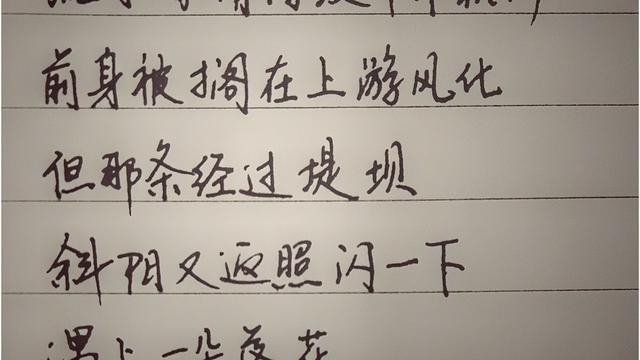 前身被搁在上游风化
但那条经过堤坝
斜阳又返照闪一下
遇上一朵落花